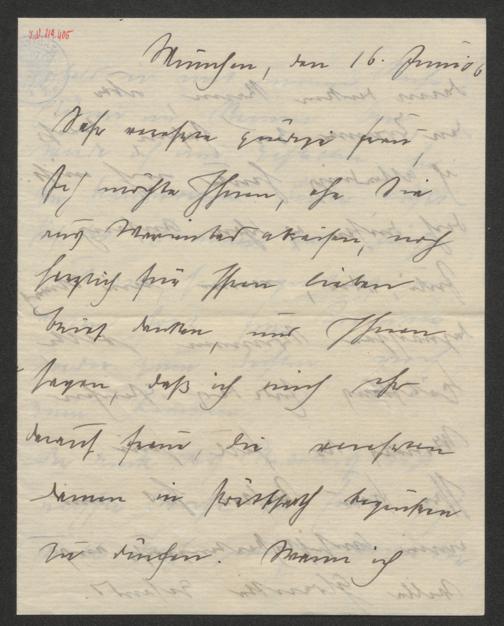 I.N. 119.405
München, den 16. Juni 06
Sehr verehrte gnädige Frau,
Ich möchte Ihnen, ehe Sie
aus Marienbad abreisen, noch
herzlich für Ihren lieben
Brief danken, und Ihnen
sagen, daß ich mich sehr
darauf freue, die verehrten
Damen in begrüßen
zu dürfen. Wenn ich